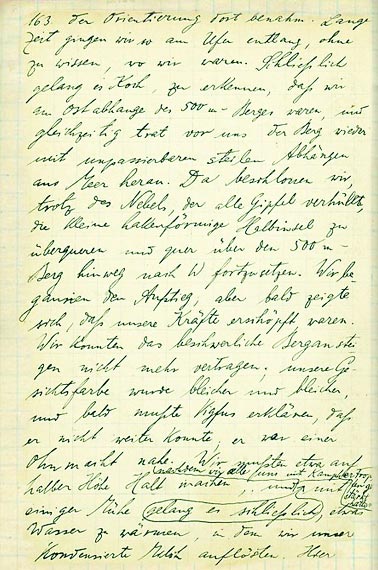 163. der Orientierung dort benahm. Lange
Zeit gingen wir so am Ufer entlang, ohne
zu wissen, wo wir waren. Schließlich
gelang es Koch, zu erkennen, daß wir
am Ostabhange des 500 m - Berges waren, und
gleichzeitig trat vor uns der Berg wieder
mit unpassierbaren steilen Abhängen
ans Meer heran. Da beschlossen wir,
trotz des Nebels, der alle Gipfel verhüllte,
die kleine hakenförmige Halbinsel zu
überqueren und quer über den 500 m -
Berg hinweg nach W fortzusetzen. Wir be-
gannen den Aufstieg, aber bald zeigte
sich, daß unsere Kräfte erschöpft waren.
Wir konnten das beschwerliche Bergan stei-
gen nicht mehr vertragen; unsere Ge-
sichtsfarbe wurde bleicher und bleicher,
und bald mußte Vigfus erklären, daß
er nicht weiter konnte, er war einer
Ohnmacht nahe. Wir mußten etwa auf
nachdem wir alle uns mit Kampfertrop-
halber Höhe Halt machen, und mit
einiger Mühe (gelang es schliesslich) etwas
Wasser zu wärmen, in dem wir unser
Kondensierte Milch auflösten. Hier